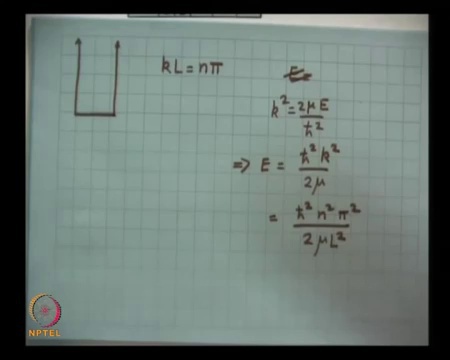 kL = nπ
E=
k² = 2μE / ħ²
⇒ E = ħ²k² / 2μ
= ħ²n²π² / 2μL²
NPTEL